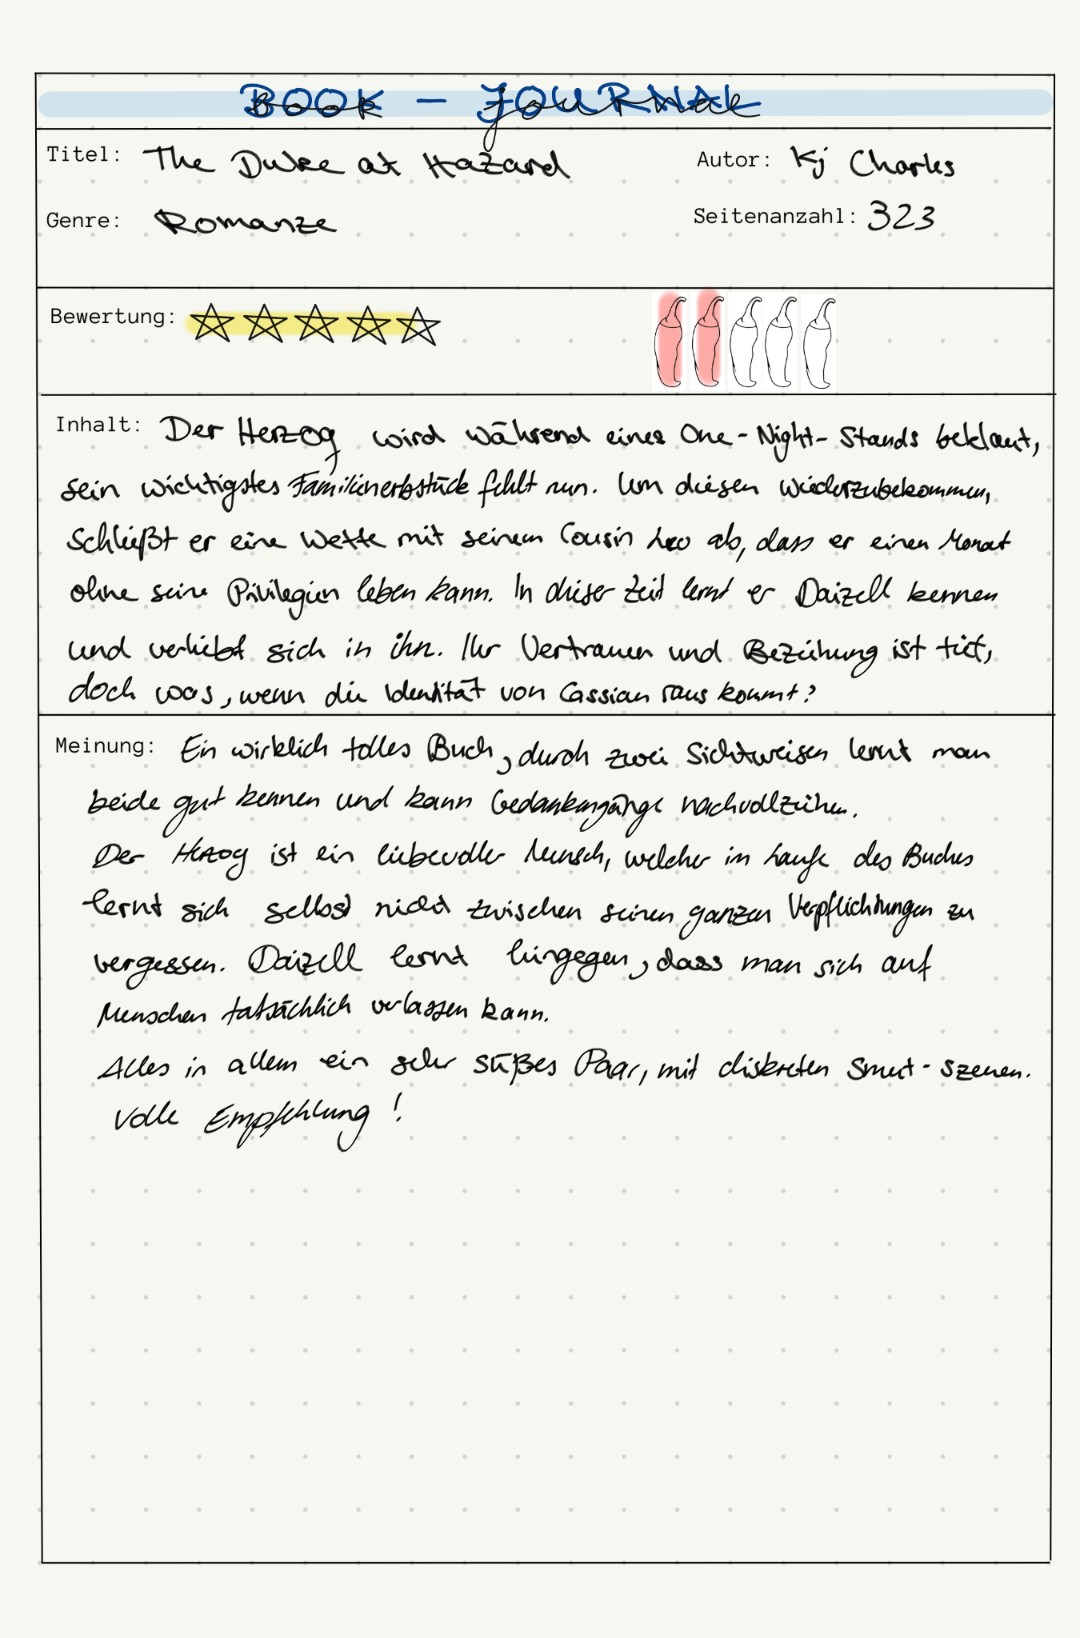 BOOK - JOURNAL
Titel: The Duke at Hazard
Autor: Kj Charles
Genre: Romanze
Seitenanzahl: 323
Bewertung:
Inhalt: Der Herzog wird während eines One-Night-Stands beklaut,
sein wichtigstes Familienerbstück fehlt nun. Um diesen wiederzubekommen,
schließt er eine Wette mit seinem Cousin Leo ab, dass er einen Monat
ohne seine Privilegien leben kann. In dieser Zeit lernt er Daizell kennen
und verliebt sich in ihn. Ihr Vertrauen und Beziehung ist tief,
doch was, wenn die Identität von Cassian raus kommt?
Meinung: Ein wirklich tolles Buch, durch zwei Sichtweisen lernt man
beide gut kennen und kann Gedankengänge nachvollziehen.
Der Herzog ist ein liebevoller Mensch, welcher im Laufe des Buches
lernt sich selbst nicht zwischen seinen ganzen Verpflichtungen zu
vergessen. Daizell lernt hingegen, dass man sich auf
Menschen tatsächlich verlassen kann.
Alles in allem ein sehr süßes Paar, mit diskreten Smut-szenen.
Volle Empfehlung!